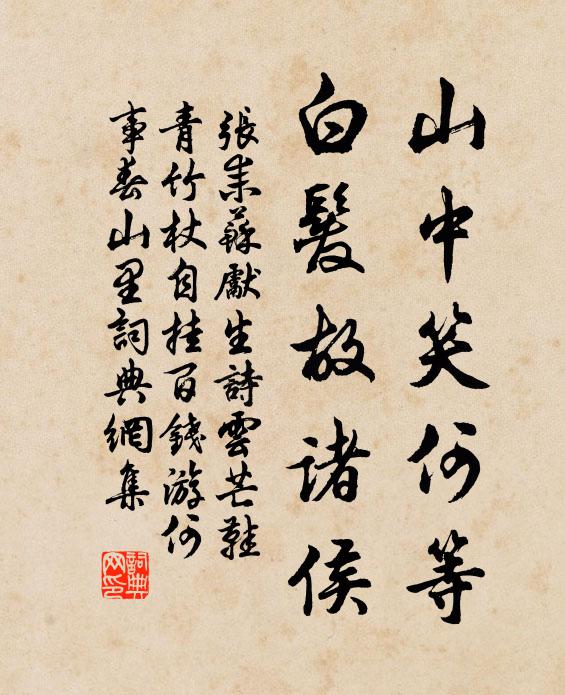 山中笑何等
白髮故諸侯
張耒蘇獻生詩雲芒鞋
青竹杖自挂百錢游何
事春山里詞典網集
詞典網印